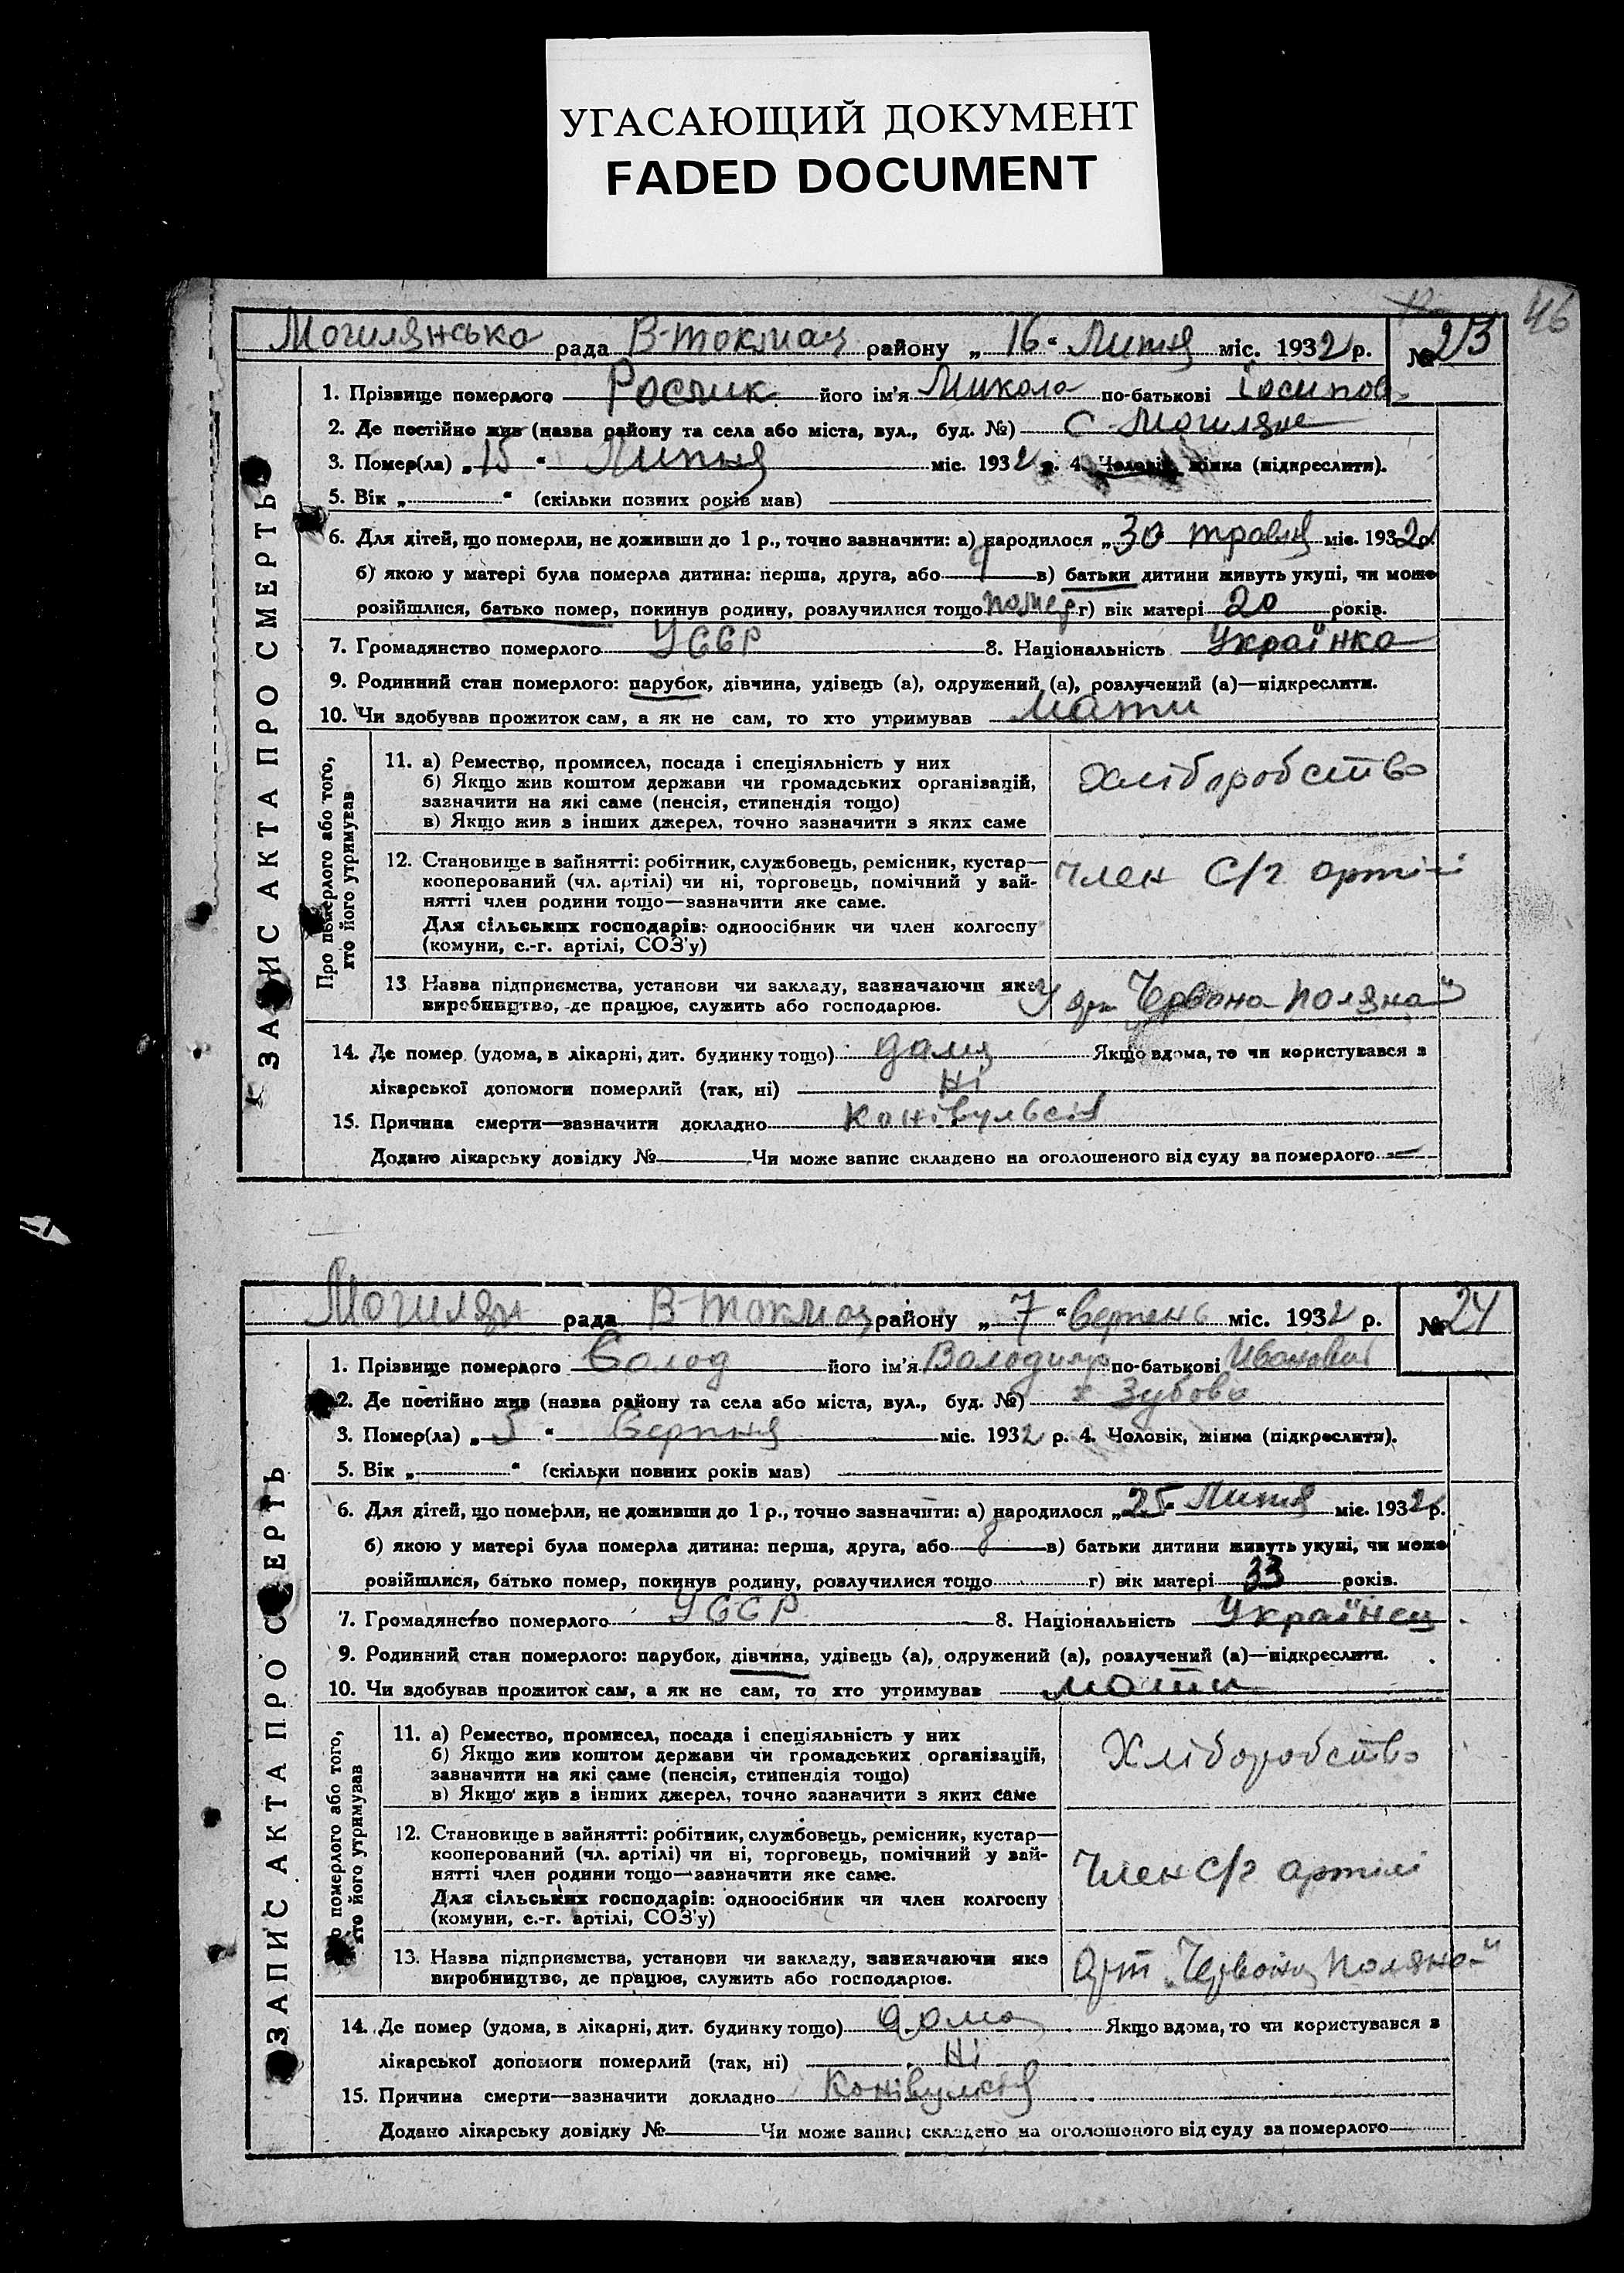 УГАСАЮЩИЙ ДОКУМЕНТ
FADED DOCUMENT
46
Могилянська рада В-токмац району „ 16 “ Липня міс. 1932 р. № 213
ЗАПИС АКТА ПРО СМЕРТЬ
1. Прізвище померлого його ім'я Микола по-батькові Іосипов
2. Де постійно жив (назва району та села або міста, вул., буд. №) С Могиляне
3. Помер(ла) „ 15 “ Липня міс. 1932 р. 4. Чоловік, жінка (підкреслити).
5. Вік „ “ (скільки повних років мав)
6. Для дітей, що померли, не доживши до 1 р., точно зазначити: а) народилося „ 30 травня міс. 1932 р.
б) якою у матері була померла дитина: перша, друга, або в) батьки дитини живуть укупі, чи може
розійшлися, батько помер, покинув родину, розлучилися тощо помер г) вік матері 20 років.
7. Громадянство померлого УССР 8. Національність Українка
9. Родинний стан померлого: парубок, дівчина, удівець (а), одружений (а), розлучений (а)—підкреслити.
10. Чи здобував прожиток сам, а як не сам, то хто утримував мати
Про померлого або того, хто його утримував
11. а) Ремество, промисел, посада і спеціяльність у них
б) Якщо жив коштом держави чи громадських організацій,
зазначити на які саме (пенсія, стипендія тощо)
в) Якщо жив з інших джерел, точно зазначити з яких саме
Хліборобство
12. Становище в зайнятті: робітник, службовець, ремісник, кустар—
кооперований (чл. артілі) чи ні, торговець, помічний у зай-
нятті член родини тощо—зазначити яке саме.
Для сільських господарів: одноосібник чи член колгоспу
(комуни, с.-г. артілі, СОЗ'у)
Член С/г артілі
13 Назва підприємства, установи чи закладу, зазначаючи яке
виробництво, де працює, служить або господарює.
Червона поляна"
14. Де помер (удома, в лікарні, дит. будинку тощо) дома Якщо вдома, то чи користувався з
лікарської допомоги померлий (так, ні) Ні
15. Причина смерти—зазначити докладно Конівульсія
Додано лікарську довідку № Чи може запис складено на оголошеного від суду за померлого —
Могилян рада В-токмац району „ 7 “ Серпень міс. 1932 р. № 24
ЗАПИС АКТА ПРО СМЕРТЬ
1. Прізвище померлого Солод його ім'я Володимир по-батькові Іванович
2. Де постійно жив (назва району та села або міста, вул., буд. №) х Зубово
3. Помер(ла) „ 5 “ Серпня міс. 1932 р. 4. Чоловік, жінка (підкреслити).
5. Вік „ “ (скільки повних років мав)
6. Для дітей, що померли, не доживши до 1 р., точно зазначити: а) народилося „ 25 “ Липня міс. 1932 р.
б) якою у матері була померла дитина: перша, друга, або в) батьки дитини живуть укупі, чи може
розійшлися, батько помер, покинув родину, розлучилися тощо г) вік матері 33 років.
7. Громадянство померлого УССР 8. Національність Українец
9. Родинний стан померлого: парубок, дівчина, удівець (а), одружений (а), розлучений (а)—підкреслити.
10. Чи здобував прожиток сам, а як не сам, то хто утримував мати
Про померлого або того, хто його утримував
11. а) Ремество, промисел, посада і спеціяльність у них
б) Якщо жив коштом держави чи громадських організацій,
зазначити на які саме (пенсія, стипендія тощо)
в) Якщо жив з інших джерел, точно зазначити з яких саме
Хліборобство
12. Становище в зайнятті: робітник, службовець, ремісник, кустар—
кооперований (чл. артілі) чи ні, торговець, помічний у зай-
нятті член родини тощо—зазначити яке саме.
Для сільських господарів: одноосібник чи член колгоспу
(комуни, с.-г. артілі, СОЗ'у)
Член С/г артілі
13. Назва підприємства, установи чи закладу, зазначаючи яке
виробництво, де працює, служить або господарює.
Арт „Червона поляна"
14. Де помер (удома, в лікарні, дит. будинку тощо) дома Якщо вдома, то чи користувався з
лікарської допомоги померлий (так, ні) Ні
15. Причина смерти—зазначити докладно Конівульсія
Додано лікарську довідку № Чи може запис складено на оголошеного від суду за померлого